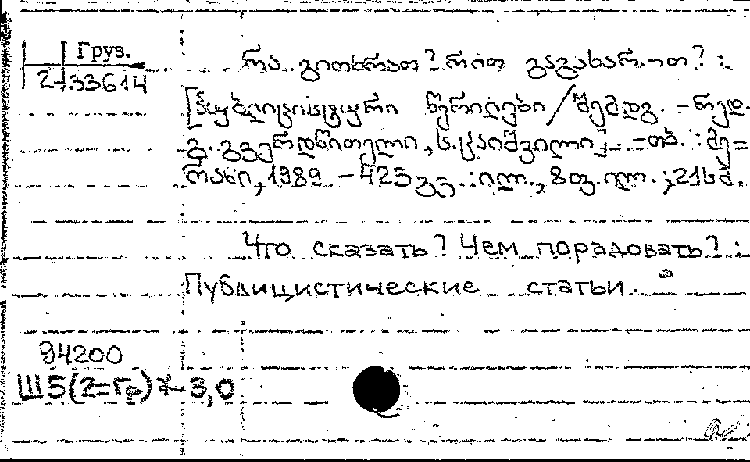 Груз.
2-133614
რა გითხრათ? რით გაგახაროთ? :
[პუბლიცისტური წერილები / შემდგ. - რედ.
გ. გვერდწითელი, ს. ცაიშვილი]. - თბ. : მე=
რანი, 1989 - 425 გვ. : ილ., 8 ფ. ილ. ; 21 სმ.
Что сказать? Чем порадовать? :
Публицистические статьи.
94200
Ш5(2=Гр)*3,0